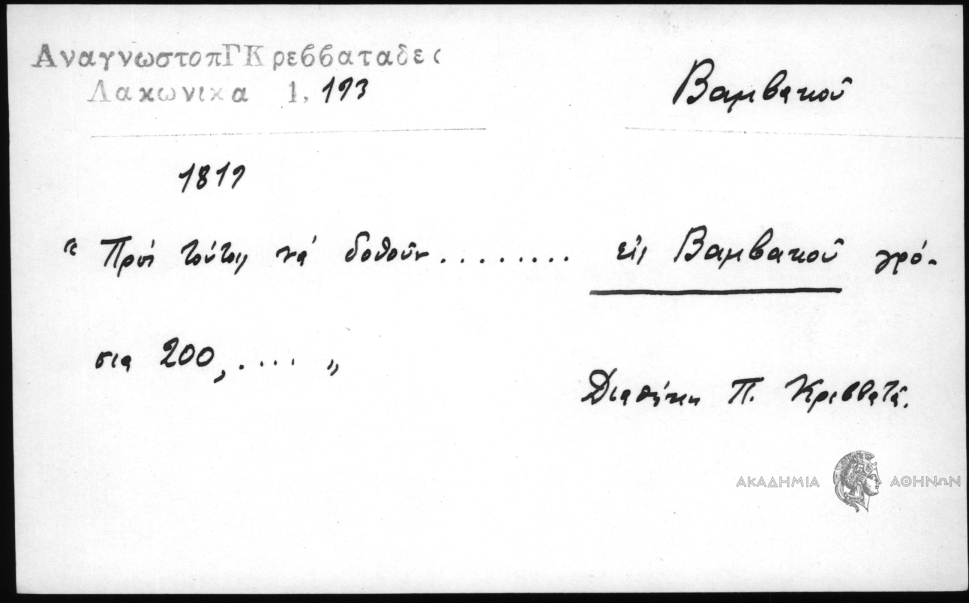 ΑναγνωστοπΓΚρεββαταδες
Λακωνικα 1, 193
Βαμβακοῦ
1819
“ Πρὸς τούτοις νά δοθοῦν ......... εἰς Βαμβακοῦ γρό-
σια 200, .... „
Διαθήκη Π. Κρεββατᾶ.
ΑΚΑΔΗΜΙΑ ΑΘΗΝΩΝ